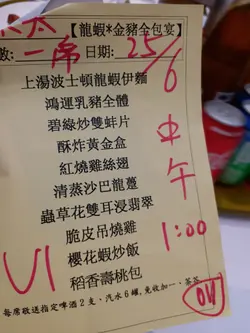 太
【龍蝦*金豬全包宴】
數:一席 日期:25/6
上湯波士頓龍蝦伊麵
鴻運乳豬全體
碧綠炒雙蚌片
酥炸黃金盒
紅燒雞絲翅
清蒸沙巴龍躉
蟲草花雙耳浸翡翠
脆皮吊燒雞
櫻花蝦炒飯
稻香壽桃包
中午
1:00
V1
每席敬送指定啤酒2支、汽水6罐,免收加一、茶芥